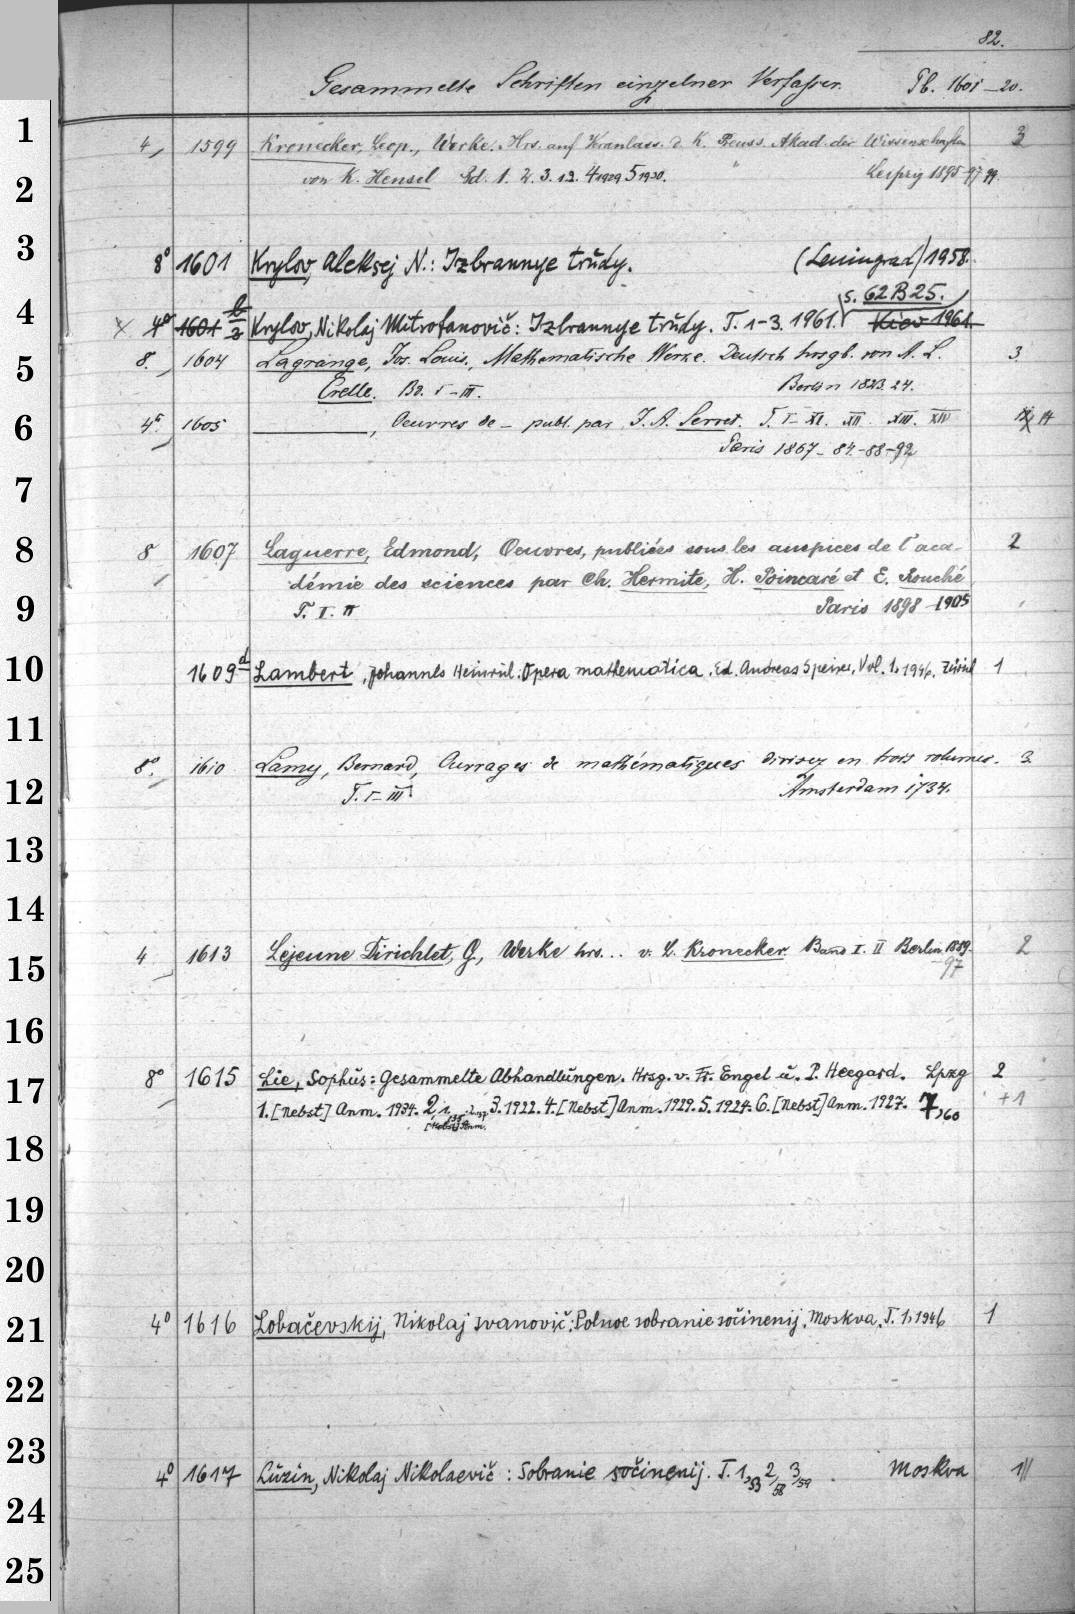 82.
Gesammelte Schriften einzelner Verfasser. Tb. 1601-20.
1
4, 1599 Kronecker, Leop., Werke. Hrs. auf Veranlass. d. K. Preuss. Akad. der Wissenschaften 3
2
von K. Hensel Bd. 1. 2. 3. 4 1929 5 1930. Leipzig 1895-97 99.
3
8° 1601 Krylov, Aleksej N.: Izbrannye trudy. (Leningrad) 1958.
s. 62 B 25.
4
x 4° 1601 b/3 Krylov, Nikolaj Mitrofanovič: Izbrannye trudy. T. 1-3. 1961. Kiev 1961.
5
8. 1604 Lagrange, Jos. Louis, Mathematische Werke. Deutsch hrsgb. von A. L. 3
Crelle. Bd. I-III. Berlin 1823. 24.
6
4° 1605 ———, Oeuvres de – publ. par J. A. Serret. T. I-XI. XII. XIII. XIV 14
Paris 1867-84-88-92
7
8
8 1607 Laguerre, Edmond, Oeuvres, publiées sous les auspices de l'aca- 2
démie des sciences par Ch. Hermite, H. Poincaré et E. Rouché
9
T. I. II Paris 1898-1905
10
1609d Lambert, Johannes Heinrich: Opera mathematica. Ed. Andreas Speiser, Vol. 1, 1946. Zürich 1
11
8°. 1610 Lamy, Bernard, Ouvrages de mathématiques divisez en trois volumes. 3
12
T. I-III Amsterdam 1734.
13
14
15
4 1613 Lejeune Dirichlet, G., Werke hrs... v. L. Kronecker. Band I. II Berlin 1889- 2
97
16
17
8° 1615 Lie, Sophus: Gesammelte Abhandlungen. Hrsg. v. Fr. Engel u. P. Heegard. Lpzg 2
1. [Nebst] Anm. 1934. 2, 1, 35 2, 37 3. 1922. 4. [Nebst] Anm. 1929. 5. 1924. 6. [Nebst] Anm. 1927. 7, 60 +1
[Nebst] Anm.
18
19
20
21
4° 1616 Lobačevskij, Nikolaj Ivanovič: Polnoe sobranie sočinenij. Moskva. T. 1, 1946 1
22
23
4° 1617 Luzin, Nikolaj Nikolaevič: Sobranie sočinenij. T. 1,53 2/58 3/59 Moskva 1//
24
25